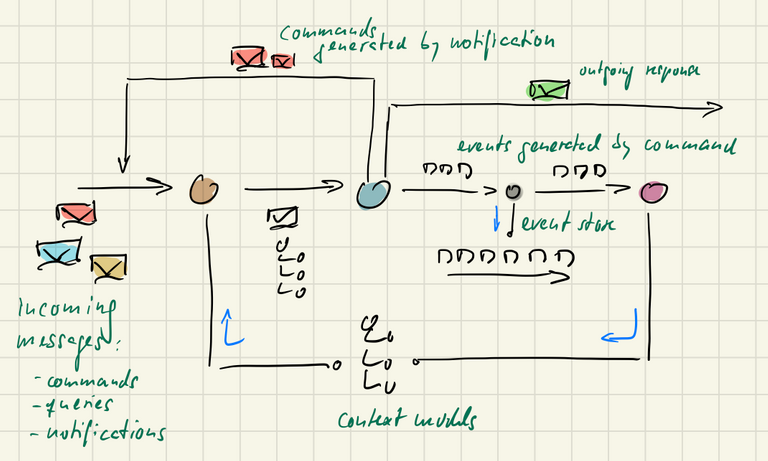 Commands
generated by notification
outgoing response
events generated by command
event store
Incoming
messages:
- commands
- queries
- notifications
context models